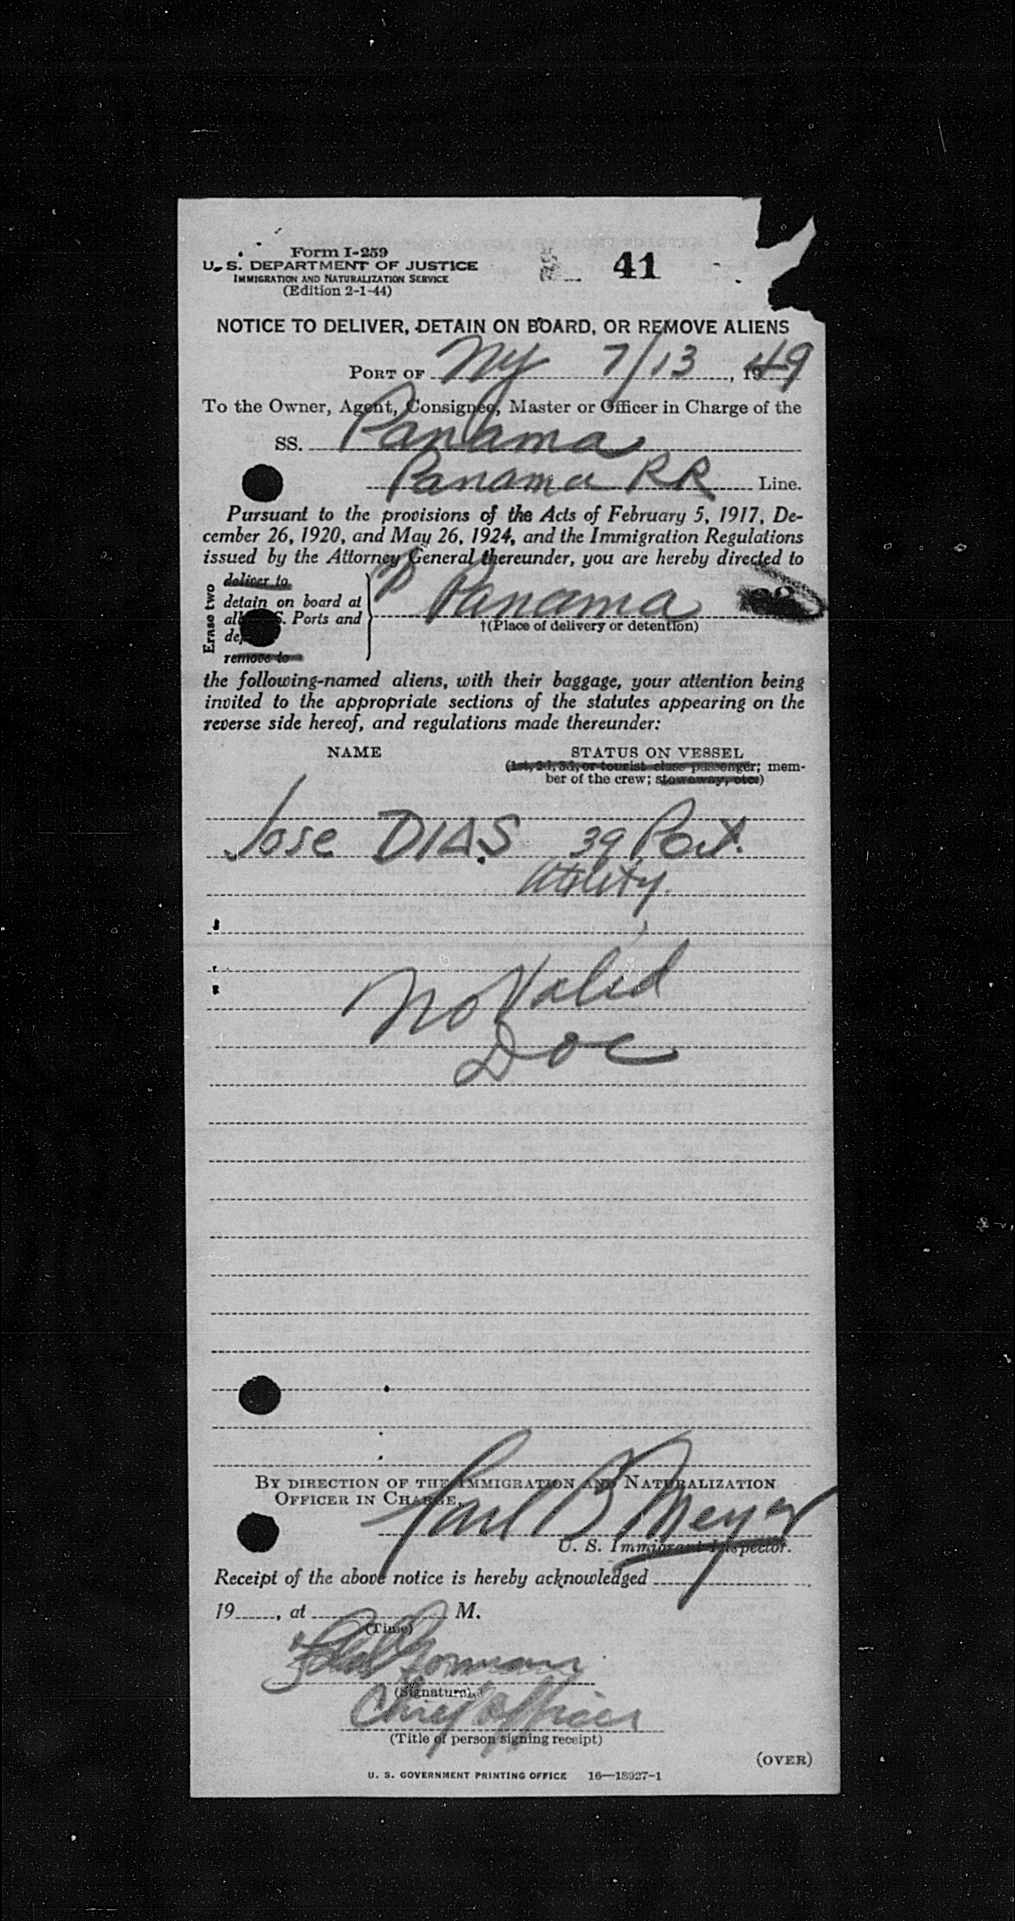 Form I-259
U. S. DEPARTMENT OF JUSTICE
IMMIGRATION AND NATURALIZATION SERVICE
(Edition 2-1-44)
41
NOTICE TO DELIVER, DETAIN ON BOARD, OR REMOVE ALIENS
PORT OF NY 7/13, 1949
To the Owner, Agent, Consignee, Master or Officer in Charge of the
SS. Panama
Panama RR Line.
Pursuant to the provisions of the Acts of February 5, 1917, De-
cember 26, 1920, and May 26, 1924, and the Immigration Regulations
issued by the Attorney General thereunder, you are hereby directed to
Erase two
deliver to
detain on board at
Ports and
remove to
Panama
†(Place of delivery or detention)
the following-named aliens, with their baggage, your attention being
invited to the appropriate sections of the statutes appearing on the
reverse side hereof, and regulations made thereunder:
NAME STATUS ON VESSEL
(1st, 2d, 3d, or tourist class passenger; mem-
ber of the crew; stowaway, etc.)
Jose DIAS 39 Port.
Utility
No Valid
Doc
BY DIRECTION OF THE IMMIGRATION AND NATURALIZATION
OFFICER IN CHARGE,
B Meyer
U. S. Immigrant Inspector.
Receipt of the above notice is hereby acknowledged
19 , at M.
(Time)
(Signature)
Chief Officer
(Title of person signing receipt)
(OVER)
U. S. GOVERNMENT PRINTING OFFICE 16—18927-1